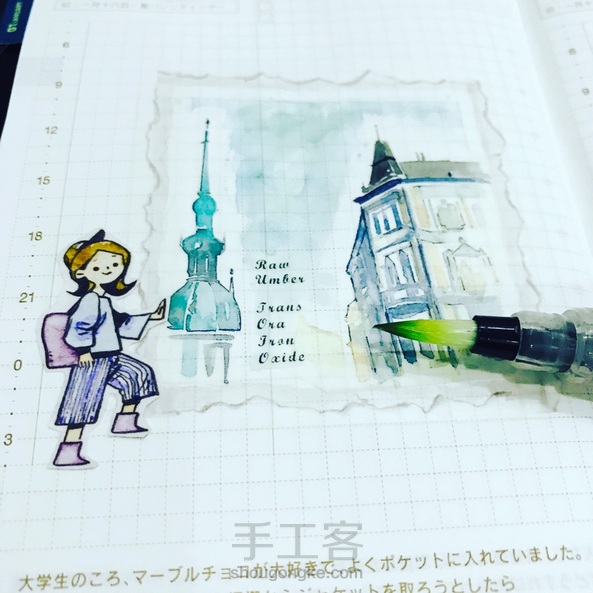 6
9
12
15
18
21
0
3
Raw
Umber
Trans
Ora
Iron
Oxide
手工客
shougongke.com
大学生のころ、マーブルチョコが大好きで、よくポケットに入れていました。
ジャケットを取ろうとしたら